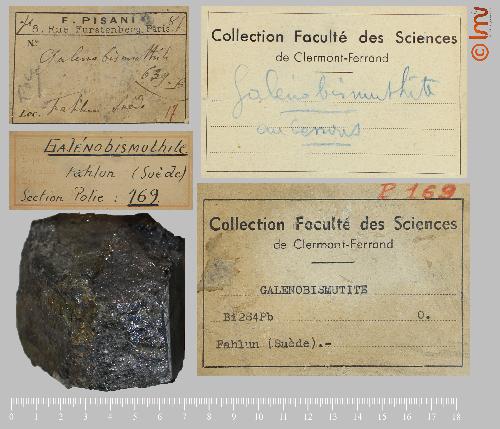 F. PISANI
8, Rue Furstenberg, Paris.
No
Galenobismuthite
639
Loc. Fahlun Suède 17
GALÉNOBISMUTHITE
Fahlun (Suède)
Section Polie : 169
Collection Faculté des Sciences
de Clermont-Ferrand
Galénobismuthite
P 169
Collection Faculté des Sciences
de Clermont-Ferrand
GALENOBISMUTITE
Bi2S4Pb O.
Fahlun (Suède).-
© lmv
0 1 2 3 4 5 6 7 8 9 10 11 12 13 14 15 16 17 18